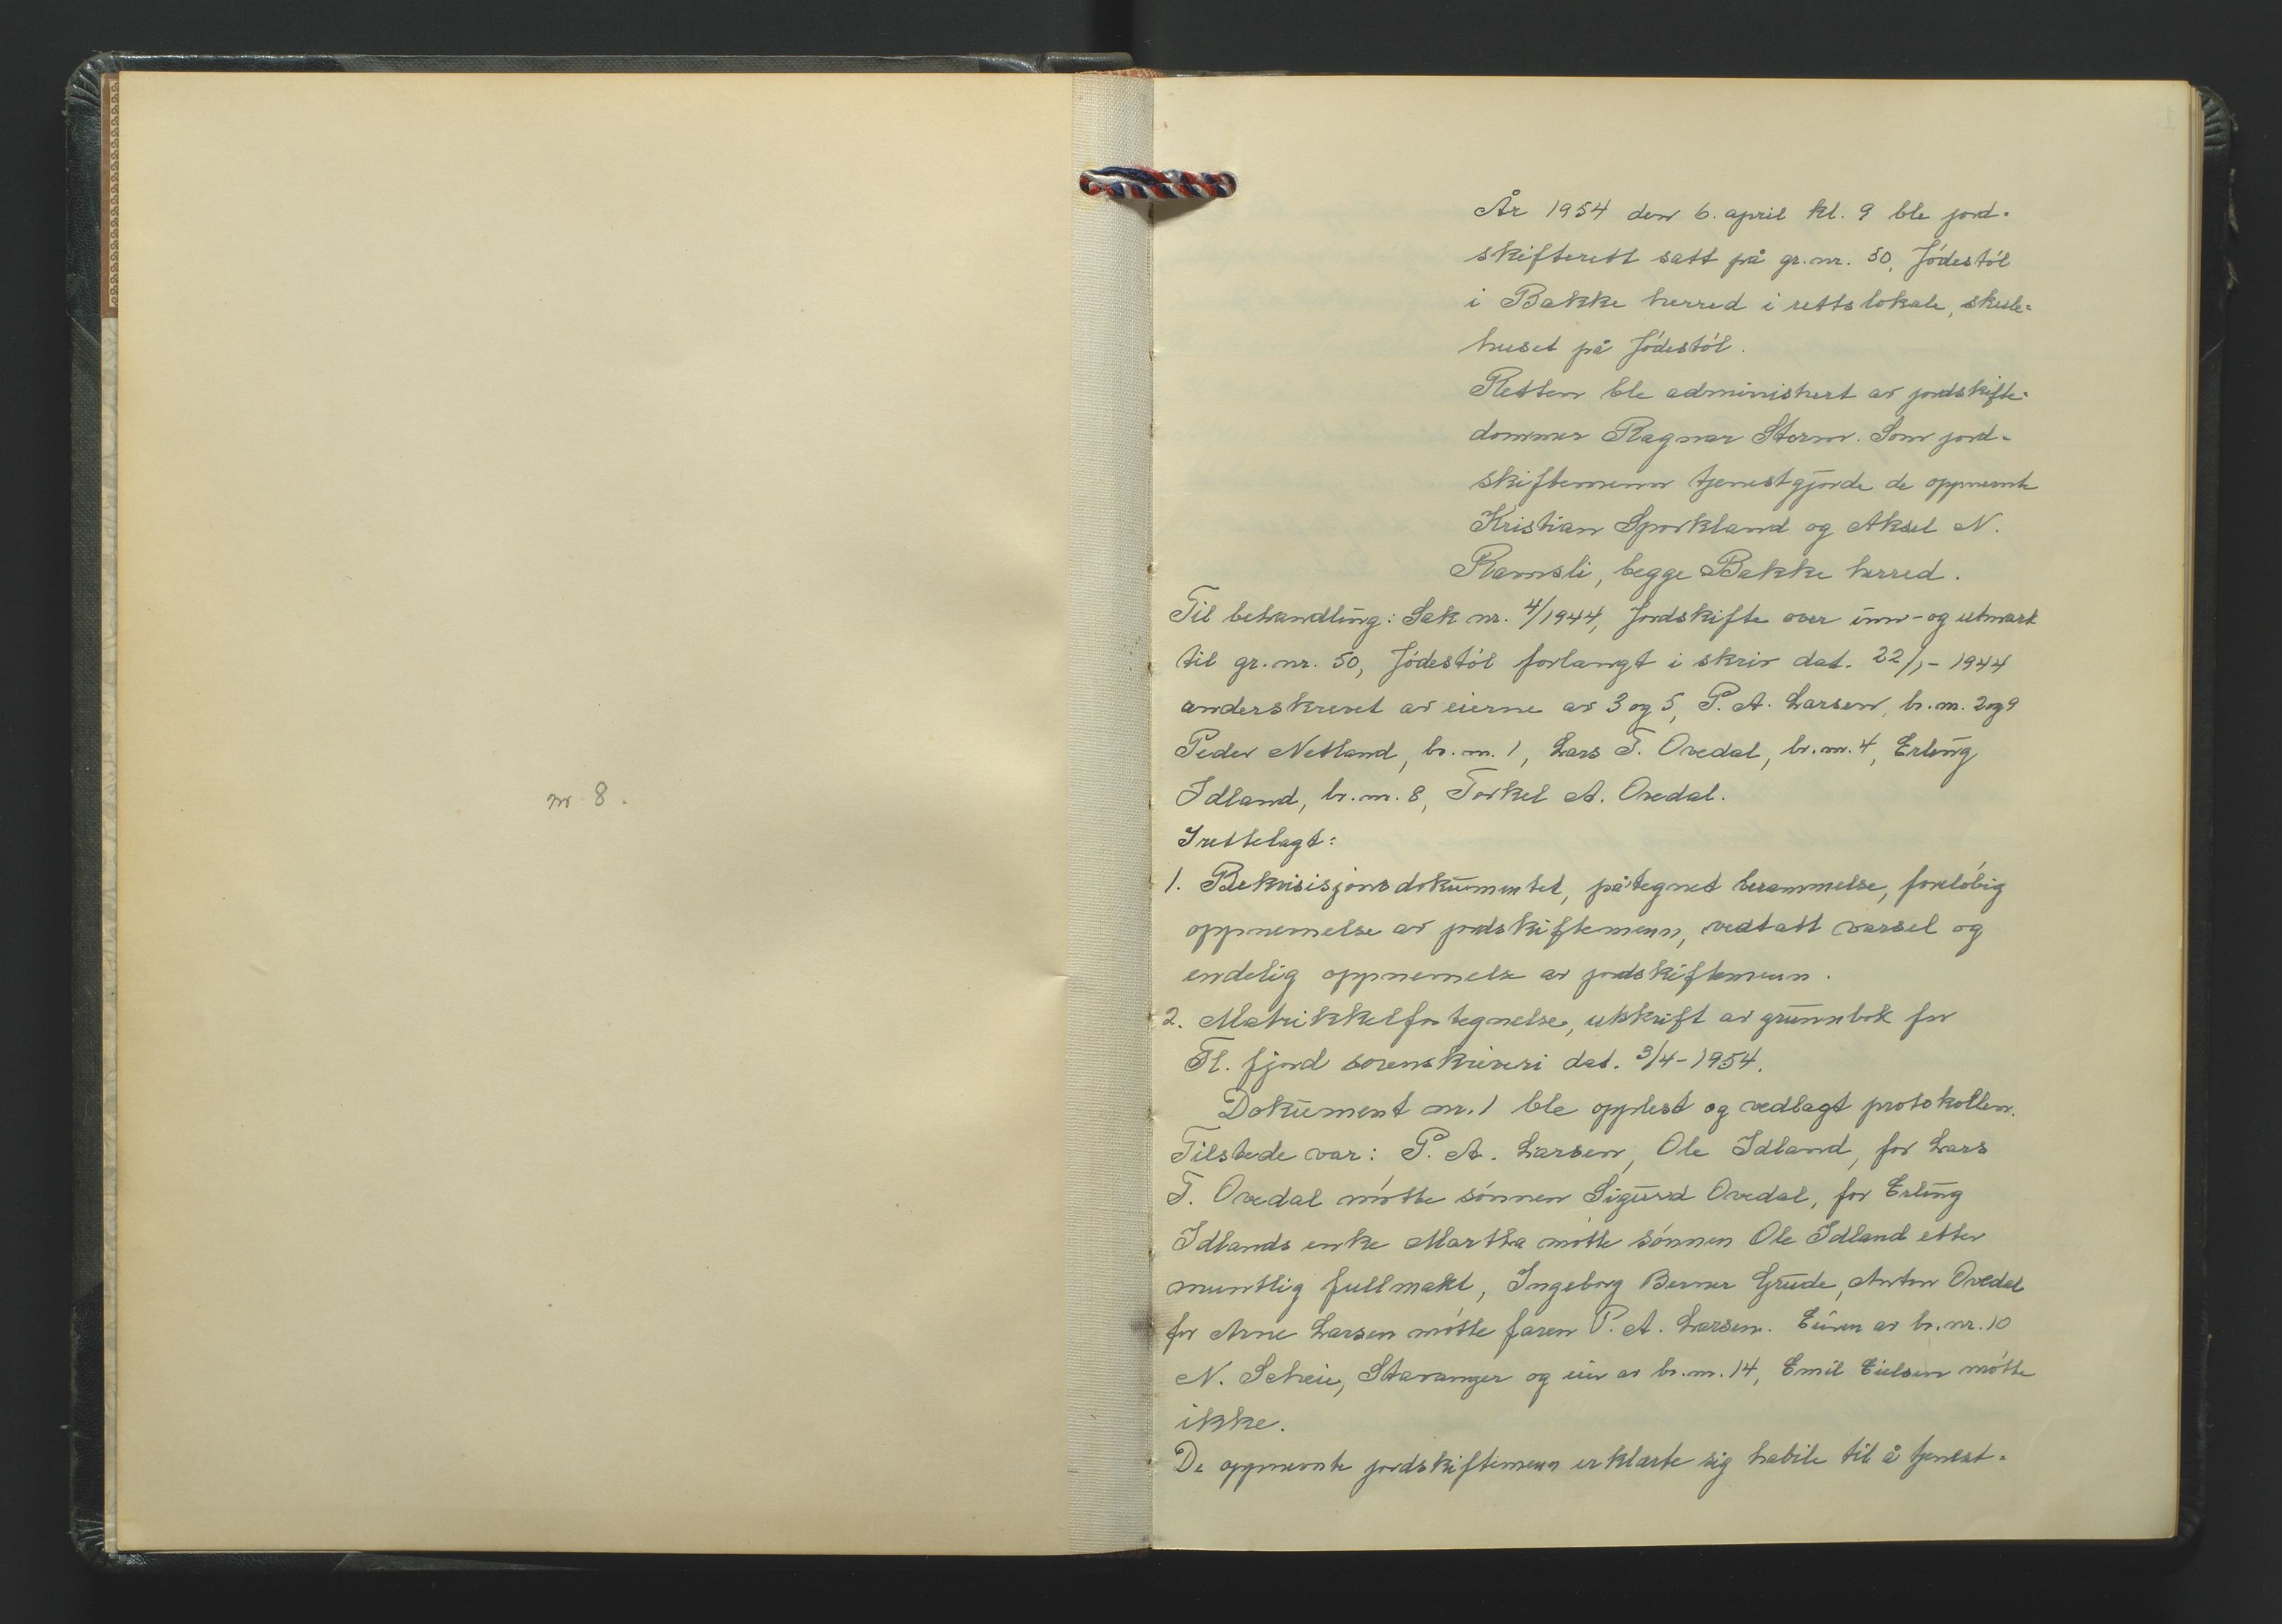 nr. 8.
År 1954 den 6. april kl. 9 ble jord-
skifterett satt på gr.nr. 50, Jödestöl
i Bakke herred i rettslokale, skule-
huset på Jödestöl.
Retten ble administrert av jordskifte-
dommer Ragnar Storm. Som jord-
skiftemenn tjenestgjorde de oppnevnte
Kristian Sporkland og Aksel N.
Ramsli, begge Bakke herred.
Til behandling: Sak nr. 4/1944, Jordskifte over inn- og utmark
til gr.nr. 50, Jödestöl forlangt i skriv dat. 22/1-1944
underskrevet av eierne av 3 og 5, P. A. Larsen, br.nr. 2 og 9
Peder Netland, br.nr. 1, Lars T. Ovedal, br.nr. 4, Erling
Idland, br.nr. 8, Torkel A. Ovedal.
Irettelagt:
1. Rekvisisjonsdokumentet, påtegnet berammelse, foreløbig
oppnemnelse av jordskiftemenn, vedtatt varsel og
endelig oppnemnelse av jordskiftemenn.
2. Matrikkelfortegnelse, utskrift av grunnbok for
Fl. fjord sorenskriveri dat. 3/4-1954.
Dokument nr. 1 ble opplest og vedlagt protokollen.
Tilstede var: P. A. Larsen, Ole Idland, for Lars
T. Ovedal mötte sönnen Sigurd Ovedal, for Erling
Idlands enke Martha mötte sönnen Ole Idland etter
muntlig fullmakt, Ingeborg Berner Grude, Anton Ovedal
for Arne Larsen mötte faren P. A. Larsen. Eieren av br.nr. 10
N. Scheie, Stavanger og eier av br.nr. 14, Emil Eielsen mötte
ikke.
De oppnevnte jordskiftemenn erklærte sig habile til å tjenest-